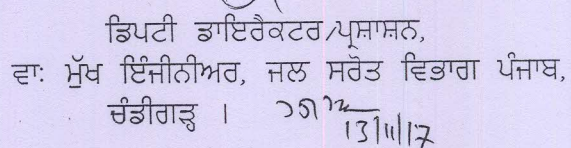 ਡਿਪਟੀ ਡਾਇਰੈਕਟਰ/ਪ੍ਰਸ਼ਾਸ਼ਨ,
ਵਾ: ਮੁੱਖ ਇੰਜੀਨੀਅਰ, ਜਲ ਸਰੋਤ ਵਿਭਾਗ ਪੰਜਾਬ,
ਚੰਡੀਗੜ੍ਹ ।
13/11/17